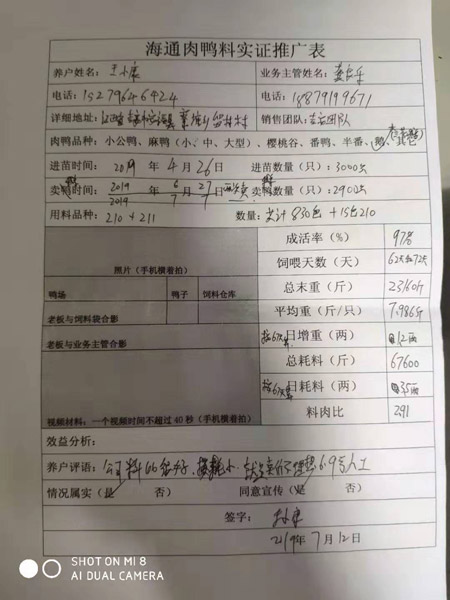 海通肉鸭料实证推广表
养户姓名: 业务主管姓名:
电话: 15279646424 电话: 15879199671
详细地址: 销售团队: 团队
肉鸭品种: 小公鸭、麻鸭（小、中、大型）、樱桃谷、番鸭、半番、鹅、其它
进苗时间: 2019 年 4 月 26 日 进苗数量（只）: 3000只
卖鸭时间: 2019 年 6 月 27 日 卖鸭数量（只）: 2900只
2019 7 7
用料品种: 210 + 211 数量: 共计 830包 + 15包210
成活率（%） 97%
照片（手机横着拍） 饲喂天数（天） 62天和72天
总末重（斤） 23160斤
鸭场 鸭子 饲料仓库 平均重（斤/只） 7.986斤
老板与饲料袋合影
老板与业务主管合影 按67天算 日增重（两） 1.2两
总耗料（斤） 67600
按67天算 日耗料（两） 3.5两
视频材料: 一个视频时间不超过 40 秒（手机横着拍） 料肉比 2.91
效益分析:
养户评语:
情况属实（是 否） 同意宣传（是 否）
签字:
2019年 7 月 12 日
SHOT ON MI 8
AI DUAL CAMERA